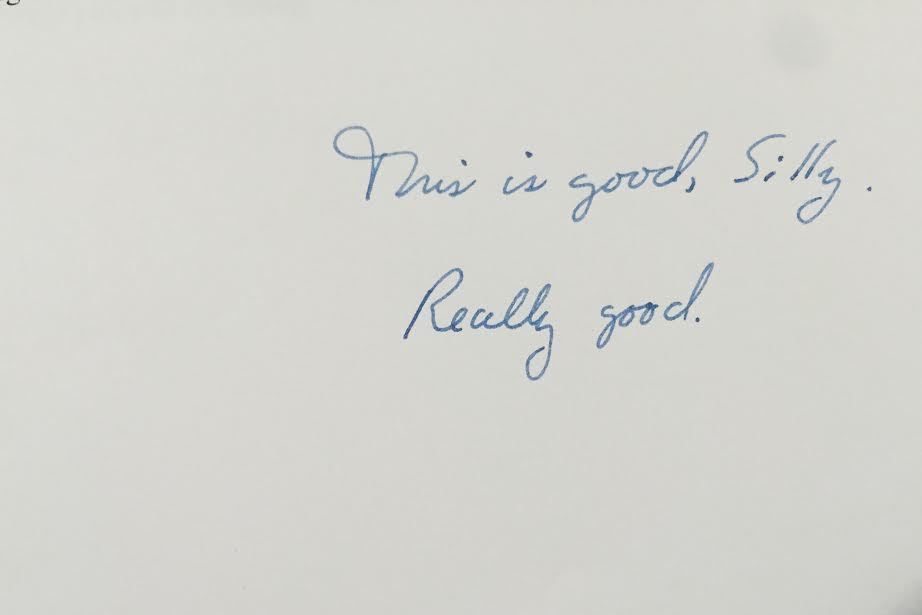 This is good, Silly.
Really good.